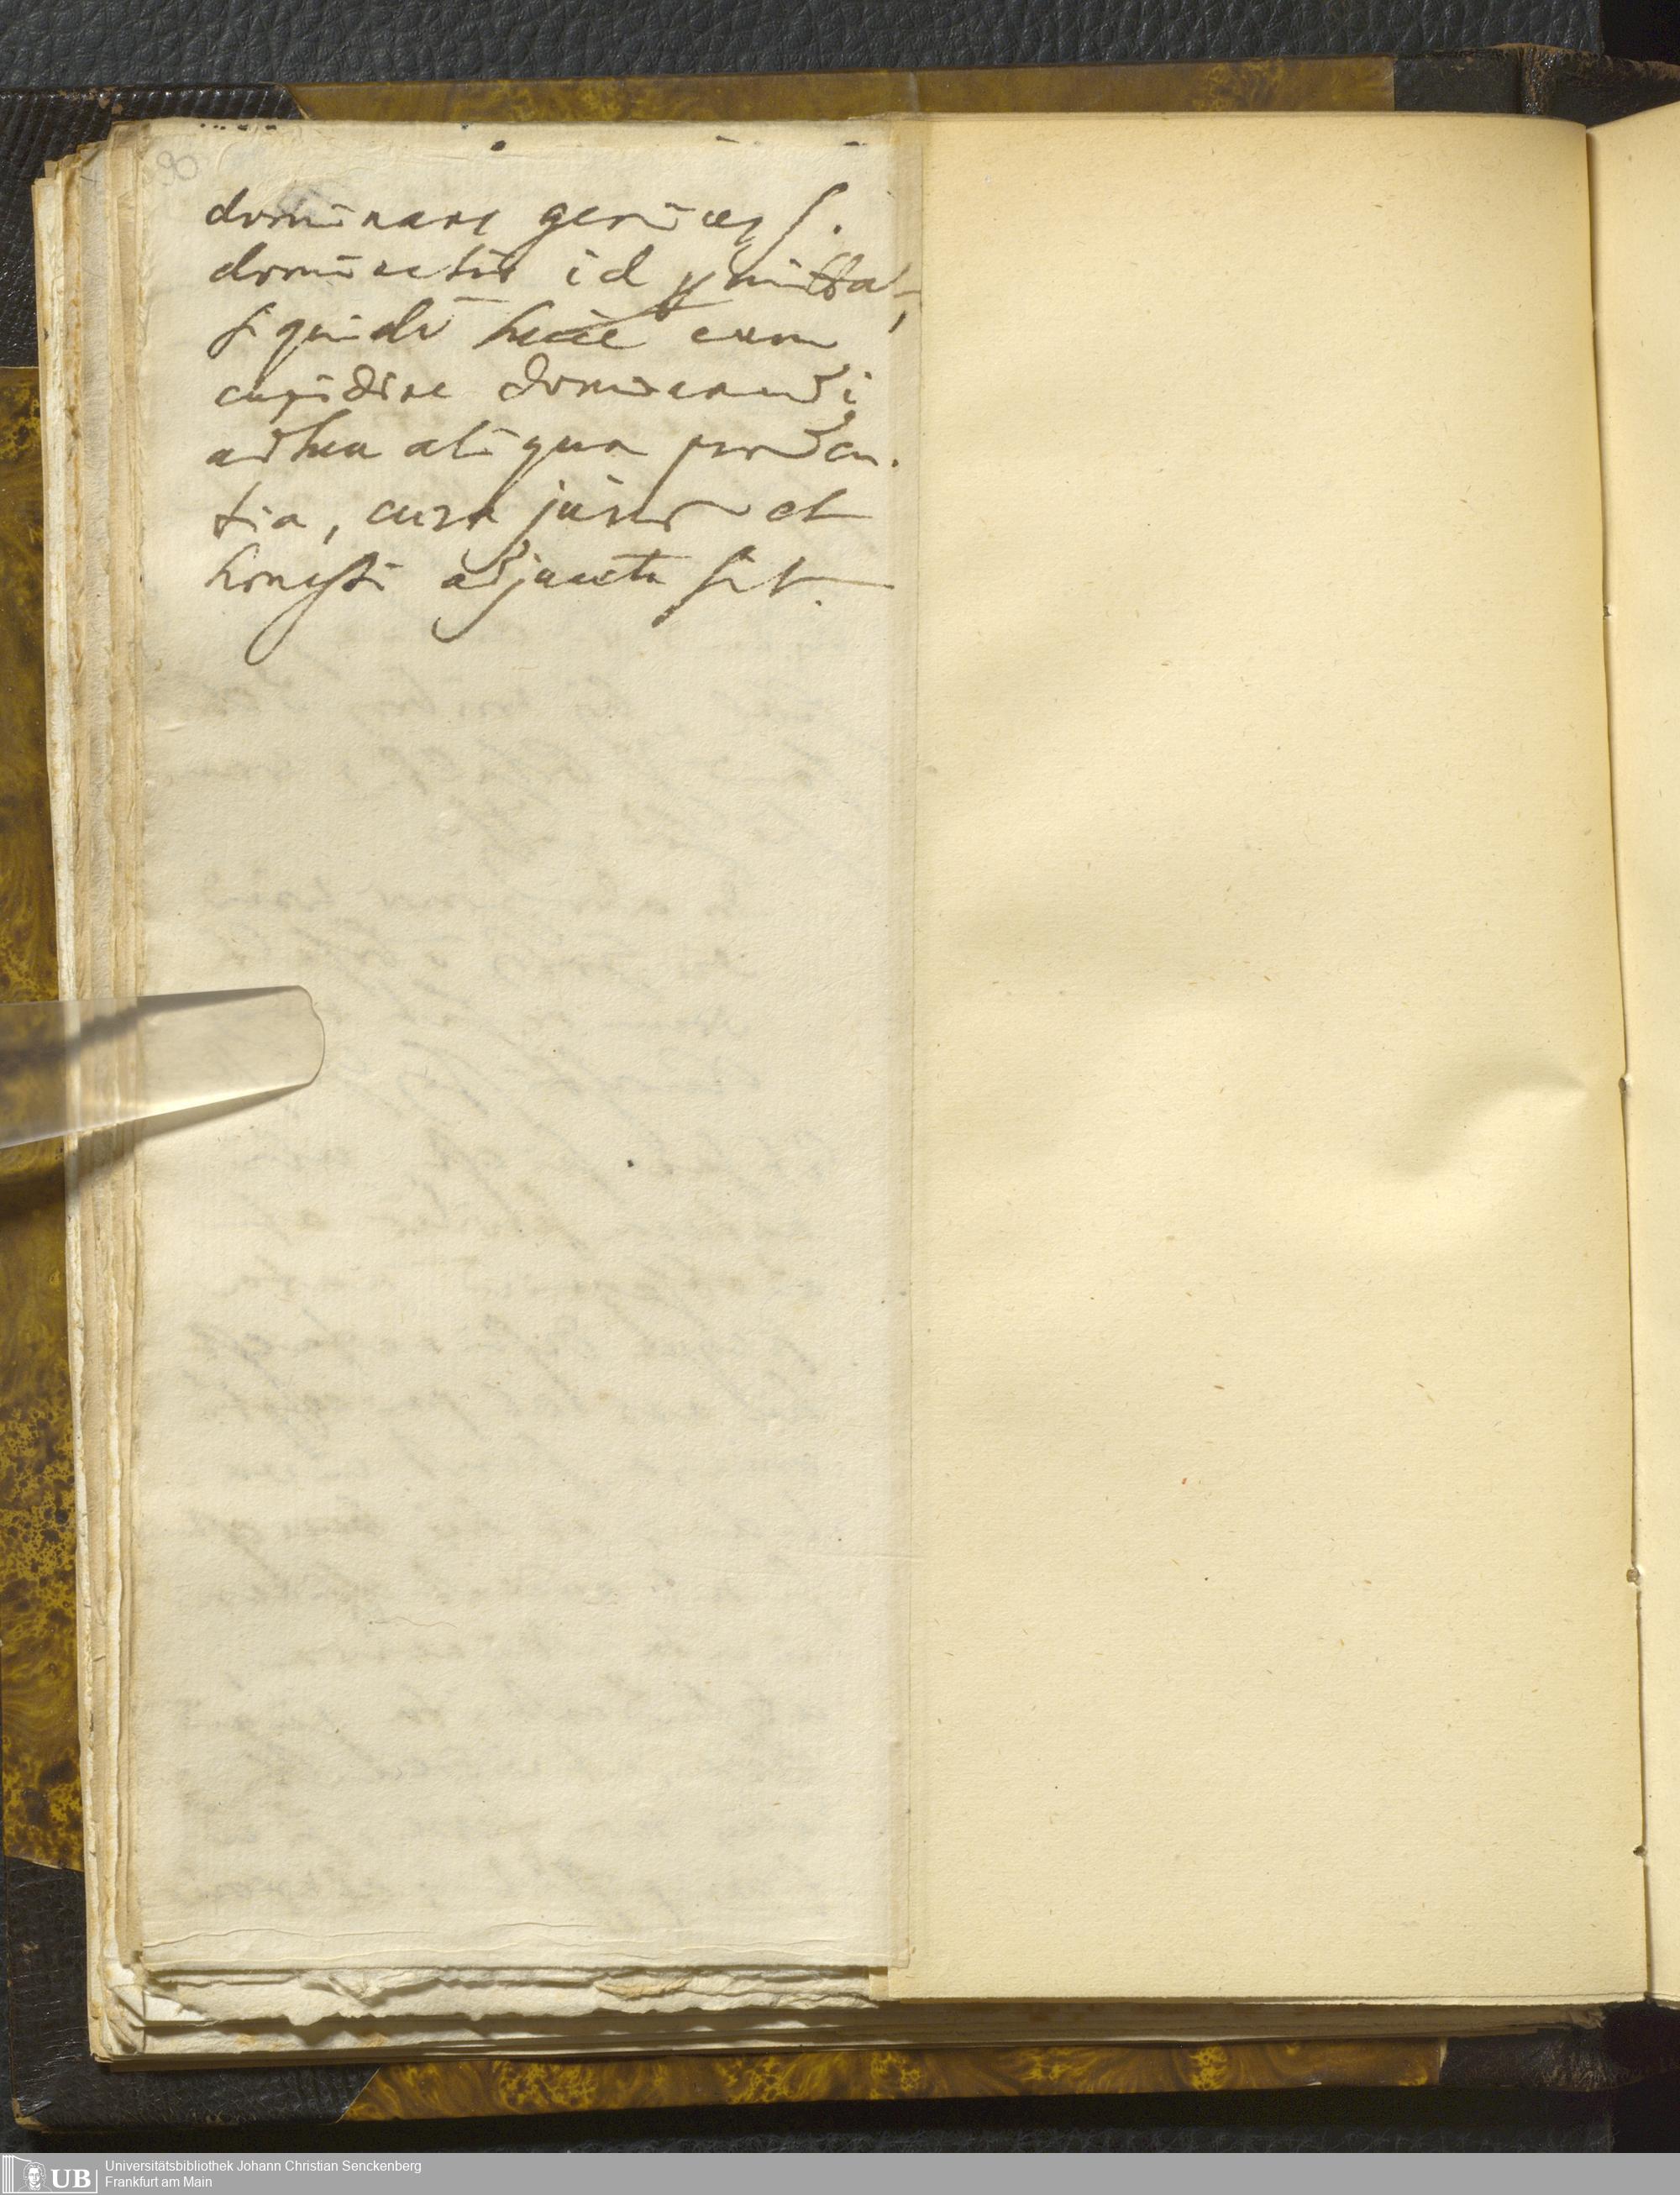 90
dominans
dominatio id
siquidē huic cum
cupidine dominandi
adhuc aliqua pruden-
tia, cura juris et
honesti adjuncta sit.
UB
Universitätsbibliothek Johann Christian Senckenberg
Frankfurt am Main